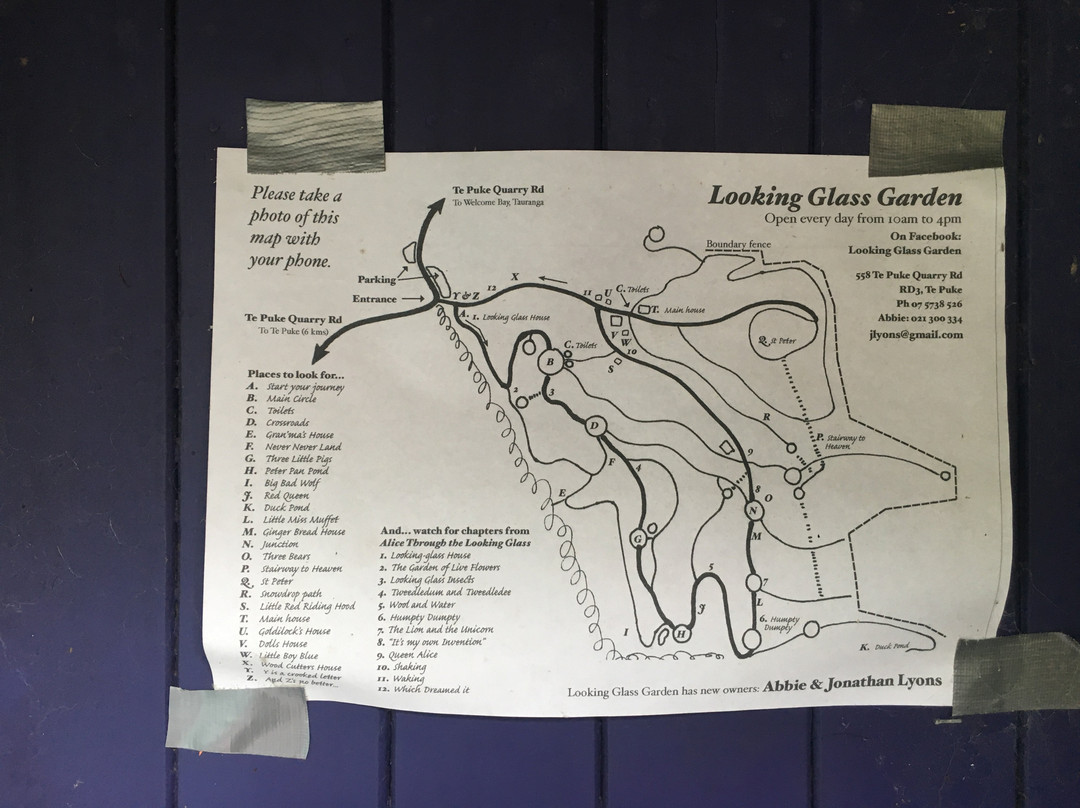 Please take a
photo of this
map with
your phone.
Te Puke Quarry Rd
To Welcome Bay, Tauranga
Looking Glass Garden
Open every day from 10am to 4pm
On Facebook:
Looking Glass Garden
558 Te Puke Quarry Rd
RD3, Te Puke
Ph 07 5738 526
Abbie: 021 300 334
jlyons@gmail.com
Boundary fence
Parking
Entrance
Te Puke Quarry Rd
To Te Puke (6 kms)
Y & Z
12
X
11
U
C. Toilets
T. Main house
A. 1. Looking Glass House
V
W
10
S
Q St Peter
C. Toilets
B
2
3
D
R
P. Stairway to
Heaven
F
4
9
8
O
E
N
G
M
5
7
J
L
6. Humpty
Dumpty
I
H
K. Duck Pond
Places to look for...
A. Start your journey
B. Main Circle
C. Toilets
D. Crossroads
E. Gran'ma's House
F. Never Never Land
G. Three Little Pigs
H. Peter Pan Pond
I. Big Bad Wolf
J. Red Queen
K. Duck Pond
L. Little Miss Muffet
M. Ginger Bread House
N. Junction
O. Three Bears
P. Stairway to Heaven
Q. St Peter
R. Snowdrop path
S. Little Red Riding Hood
T. Main house
U. Goldilock's House
V. Dolls House
W. Little Boy Blue
X. Wood Cutters House
Y. Y is a crooked letter
Z. And Z's no better...
And... watch for chapters from
Alice Through the Looking Glass
1. Looking-glass House
2. The Garden of Live Flowers
3. Looking Glass Insects
4. Tweedledum and Tweedledee
5. Wool and Water
6. Humpty Dumpty
7. The Lion and the Unicorn
8. "It's my own Invention"
9. Queen Alice
10. Shaking
11. Waking
12. Which Dreamed it
Looking Glass Garden has new owners: Abbie & Jonathan Lyons